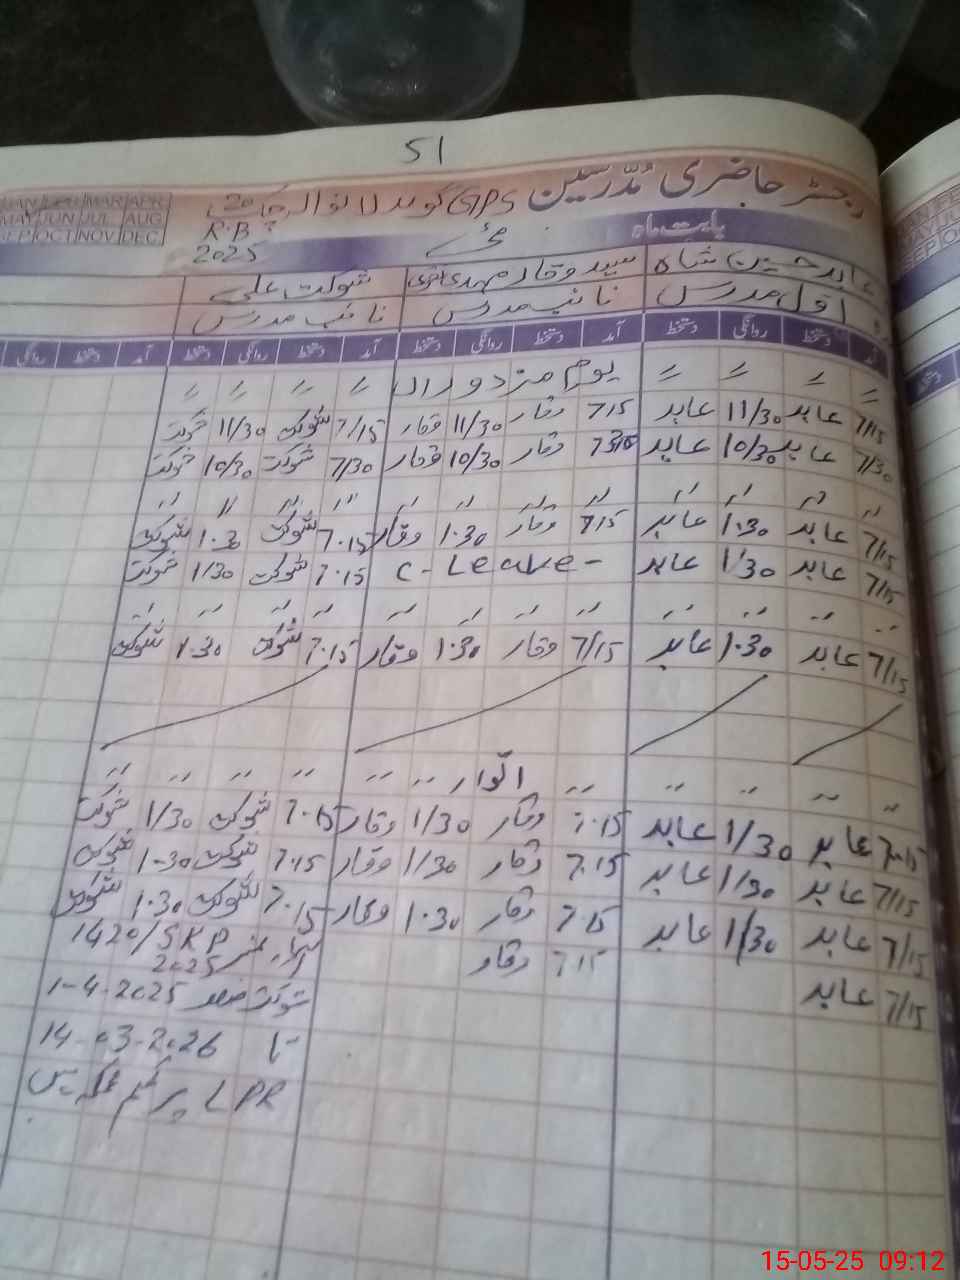 51
رجسٹر حاضری مُدّرسین GPS گوبند لا نوالہ چک
JAN FEB MAR APR
MAY JUN JUL AUG
SEP OCT NOV DEC
R.B
2025
بابت ماہ مئی
عابد حسین شاہ سید وقار مہدی شوکت علی
اول مدرس نائب مدرس نائب مدرس
آمد دستخط روانگی دستخط آمد دستخط روانگی دستخط آمد دستخط روانگی دستخط آمد دستخط روانگی
〃 〃 〃 〃 یوم مزدوراں 〃 〃 〃 〃
7/15 عابد 11/30 عابد 7/15 وقار 11/30 وقار 7/15 شوکت 11/30 شوکت
7/30 عابد 10/30 عابد 7 وقار 10/30 وقار 7/30 شوکت 10/30 شوکت
〃 〃 〃 〃 〃 〃 〃 〃 〃 〃 〃 〃
7/15 عابد 1.30 عابد 7/15 وقار 1.30 وقار 7.15 شوکت 1.30 شوکت
7/15 عابد 1/30 عابد C - Leave - 7.15 شوکت 1/30 شوکت
〃 〃 〃 〃 〃 〃 〃 〃 〃 〃 〃 〃
7/15 عابد 1.30 عابد 7/15 وقار 1.30 وقار 7.15 شوکت 1.30 شوکت
〃 〃 〃 〃 〃 اتوار 〃 〃 〃 〃 〃 〃
7.15 عابد 1/30 عابد 7.15 وقار 1/30 وقار 7.15 شوکت 1/30 شوکت
7/15 عابد 1/30 عابد 7.15 وقار 1/30 وقار 7.15 شوکت 1.30 شوکت
7/15 عابد 1/30 عابد 7.15 وقار 1.30 وقار 7.15 شوکت 1.30 شوکت
7/15 عابد 7.15 وقار نمبر 1420/SKP
2025
1-4-2025
تا 14-03-2026
LPR پر
15-05-25 09:12